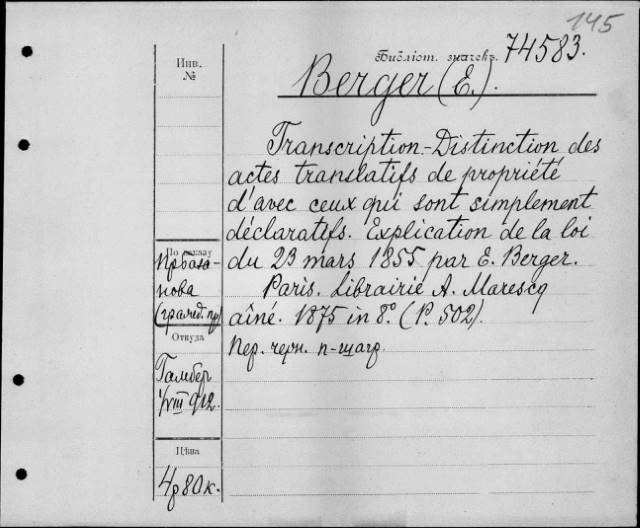 145
Инв.
№
Библіот. значекъ 74583.
Berger (E.).
Transcription-Distinction des
actes translatifs de propriété
d'avec ceux qui sont simplement
déclaratifs. Explication de la loi
du 23 mars 1855 par E. Berger.
Paris. Librairie A. Marescq
aîné. 1875 in 8º. (P. 502).
Пер. черн. п-шагр.
По
нова
Откуда
Гамбер
1/VIII 912.
Цѣна
4р80к.